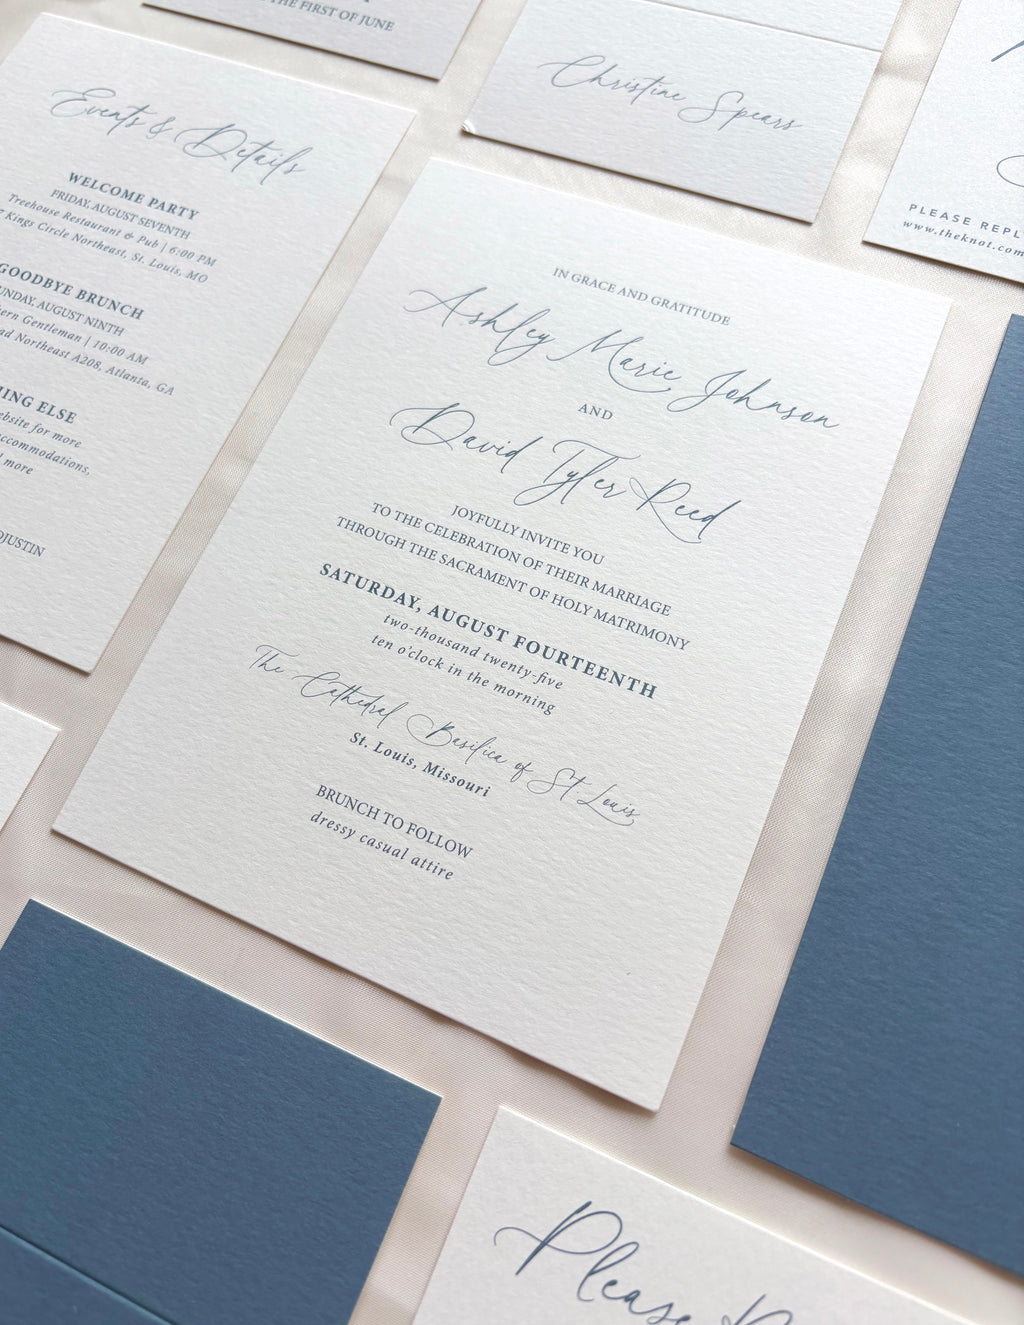 THE FIRST OF JUNE
Christine Spears
PLEASE REPL
www.theknot.com
Events & Details
WELCOME PARTY
FRIDAY, AUGUST SEVENTH
Treehouse Restaurant & Pub | 6:00 PM
7 Kings Circle Northeast, St. Louis, MO
GOODBYE BRUNCH
UNDAY, AUGUST NINTH
ern Gentleman | 10:00 AM
ad Northeast A208, Atlanta, GA
ING ELSE
ebsite for more
ccommodations,
more
JUSTIN
IN GRACE AND GRATITUDE
Ashley Marie Johnson
AND
David Tyler Reed
JOYFULLY INVITE YOU
TO THE CELEBRATION OF THEIR MARRIAGE
THROUGH THE SACRAMENT OF HOLY MATRIMONY
SATURDAY, AUGUST FOURTEENTH
two-thousand twenty-five
ten o'clock in the morning
The Cathedral Basilica of St. Louis
St. Louis, Missouri
BRUNCH TO FOLLOW
dressy casual attire
Please